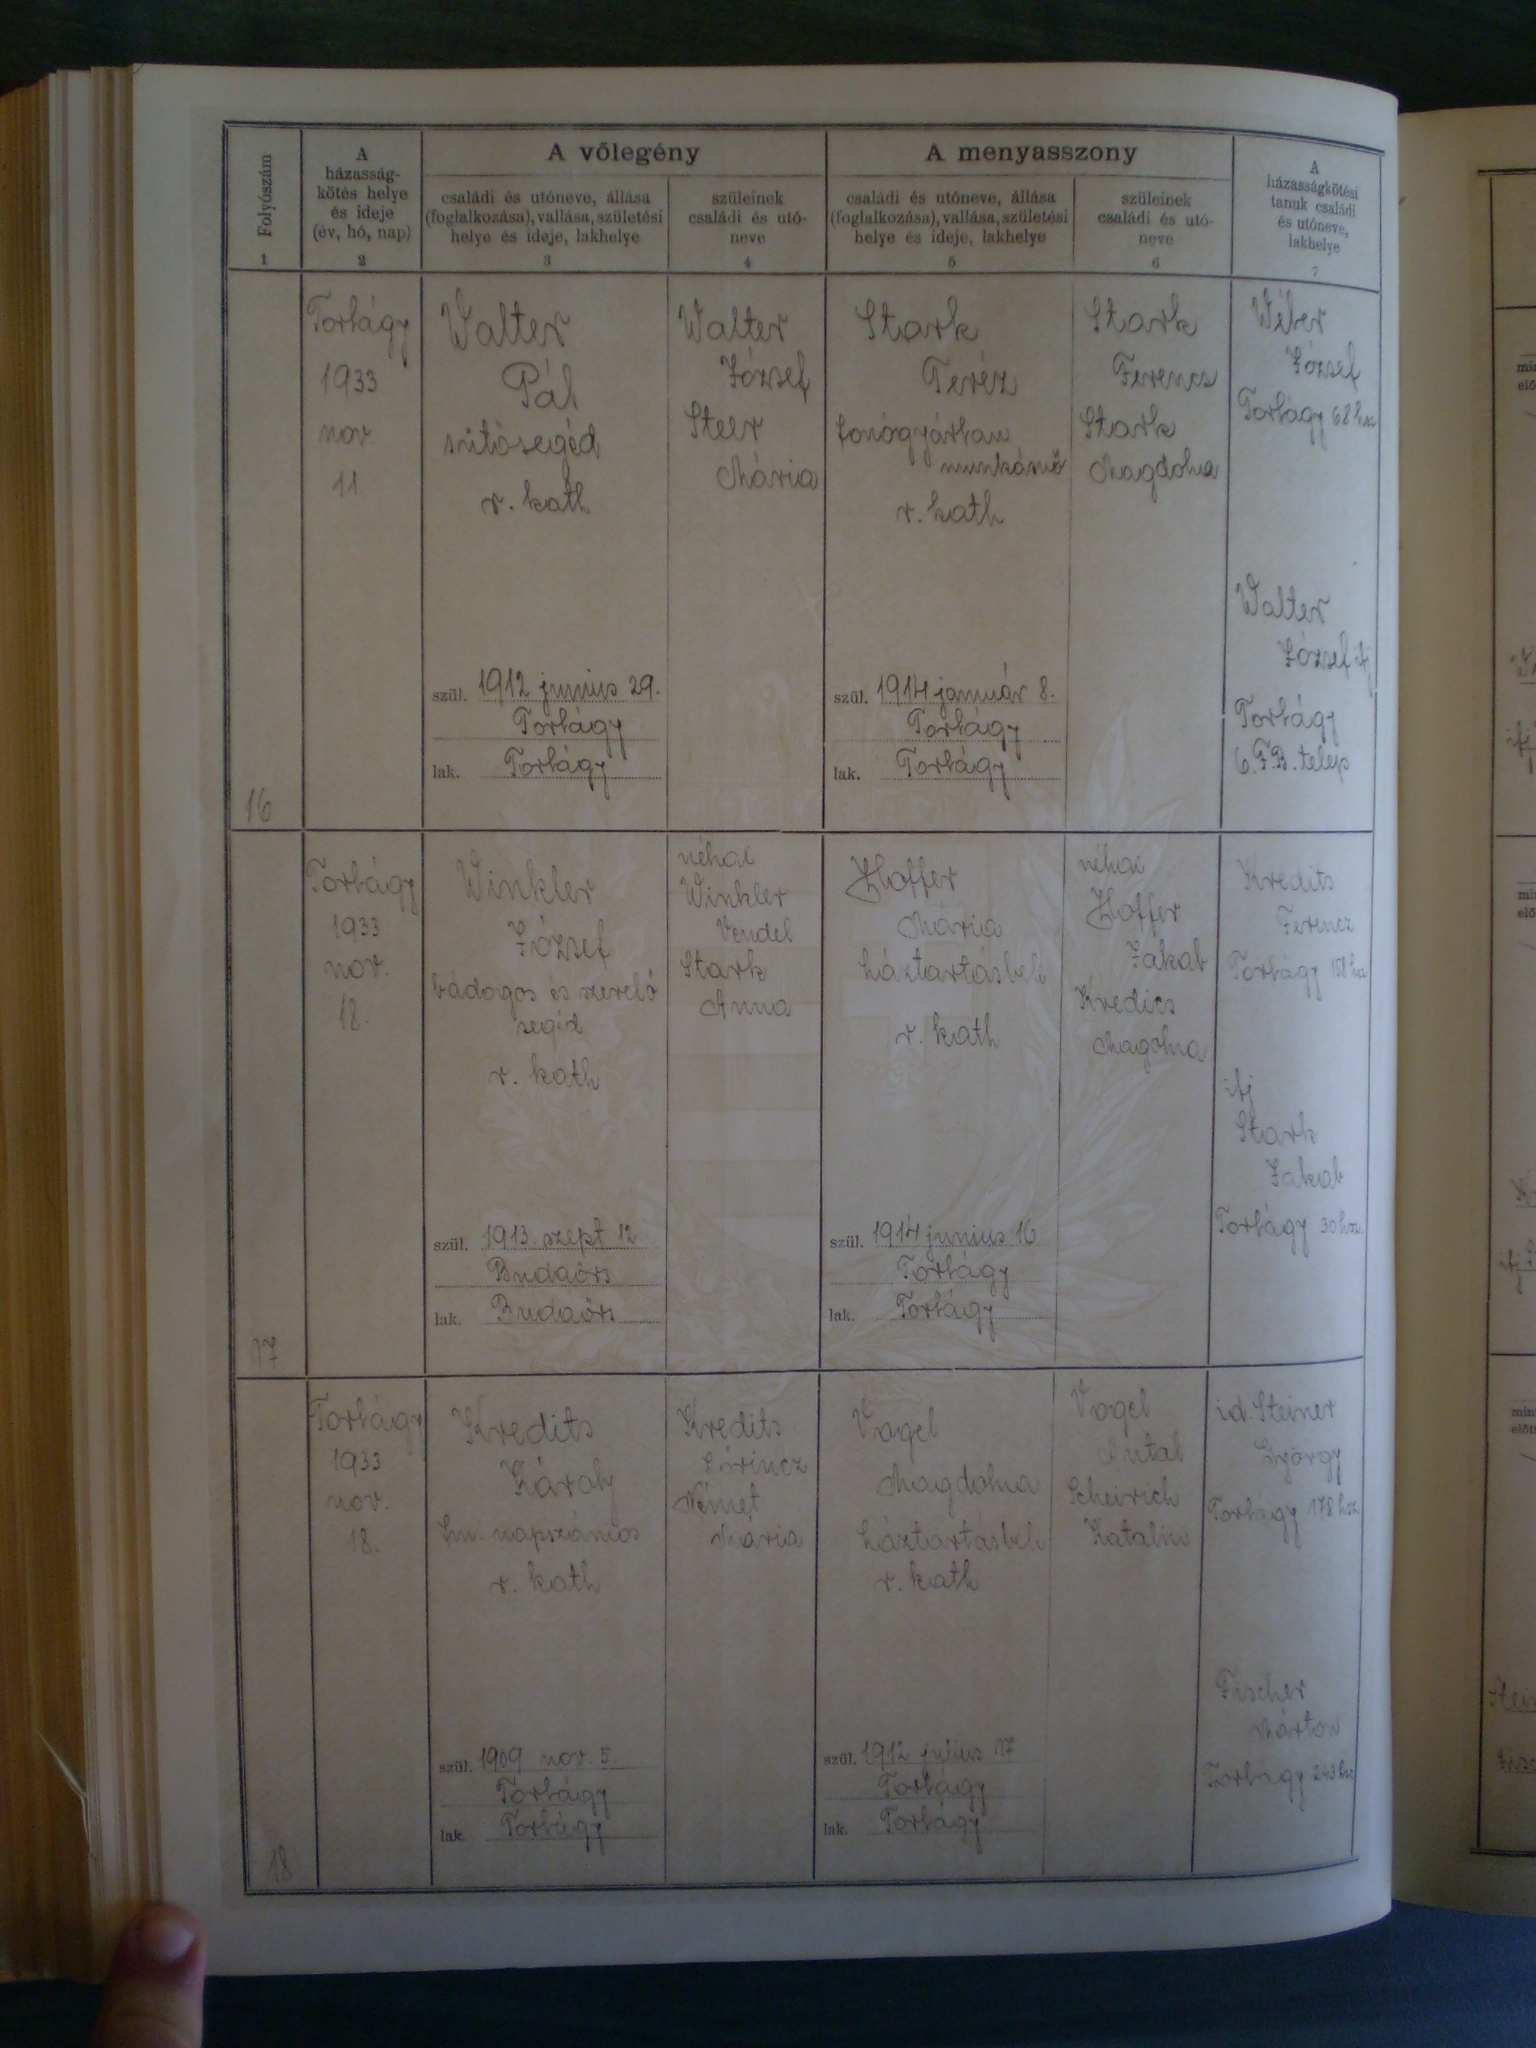 Folyószám
1
A
házasság-
kötés helye
és ideje
(év, hó, nap)
2
A vőlegény
családi és utóneve, állása
(foglalkozása), vallása, születési
helye és ideje, lakhelye
3
szüleinek
családi és utó-
neve
4
A menyasszony
családi és utóneve, állása
(foglalkozása), vallása, születési
helye és ideje, lakhelye
5
szüleinek
családi és utó-
neve
6
A
házasságkötési
tanuk családi
és utóneve,
lakhelye
7
16
Torbágy
1933
nov.
11
Walter
Pál
sütősegéd
r. kath
szül. 1912 junius 29.
Torbágy
lak. Torbágy
Walter
József
Steer
Mária
Stark
Teréz
fonógyárban
munkásnő
r. kath
szül. 1914 január 8.
Torbágy
lak. Torbágy
Stark
Ferencz
Stark
Magdolna
Wéber
József
Torbágy 68 hsz
Walter
József ifj
Torbágy
6.F.B. telep
17
Torbágy
1933
nov.
18.
Winkler
József
bádogos és szerelő
segéd
r. kath
szül. 1913. szept 12.
Budaörs
lak. Budaörs
néhai
Winkler
Vendel
Stark
Anna
Hoffer
Mária
háztartásbeli
r. kath
szül. 1914 junius 16
Torbágy
lak. Torbágy
néhai
Hoffer
Jakab
Kredics
Magolna
Kredits
Ferencz
Torbágy 158 hsz
ifj
Stark
Jakab
Torbágy 30 hsz.
18
Torbágy
1933
nov.
18.
Kredits
Károly
fm. napszámos
r. kath
szül. 1909 nov. 5.
Torbágy
lak. Torbágy
Kredits
Lőrincz
Német
Mária
Vogel
Magdolna
háztartásbeli
r. kath
szül. 1912 julius 17
Torbágy
lak. Torbágy
Vogel
Antal
Scheirich
Katalin
id. Steiner
György
Torbágy 178 hsz
Fischer
Márton
Torbágy 243 hsz